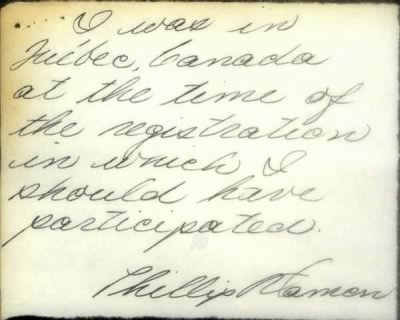 I was in
Québec, Canada
at the time of
the registration
in which I
should have
participated.
Phillip Hamon